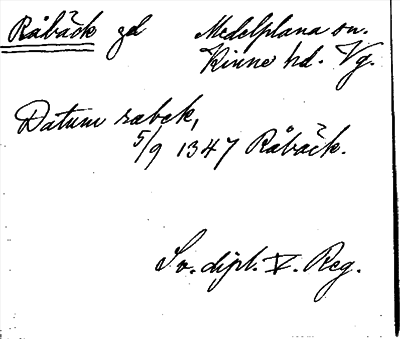 Råbäck gd Medelplana sn.
Kinne hd. Vg.
Datum rabek,
5/9 1347 Råbäck.
Sv. dipl. V. Reg.